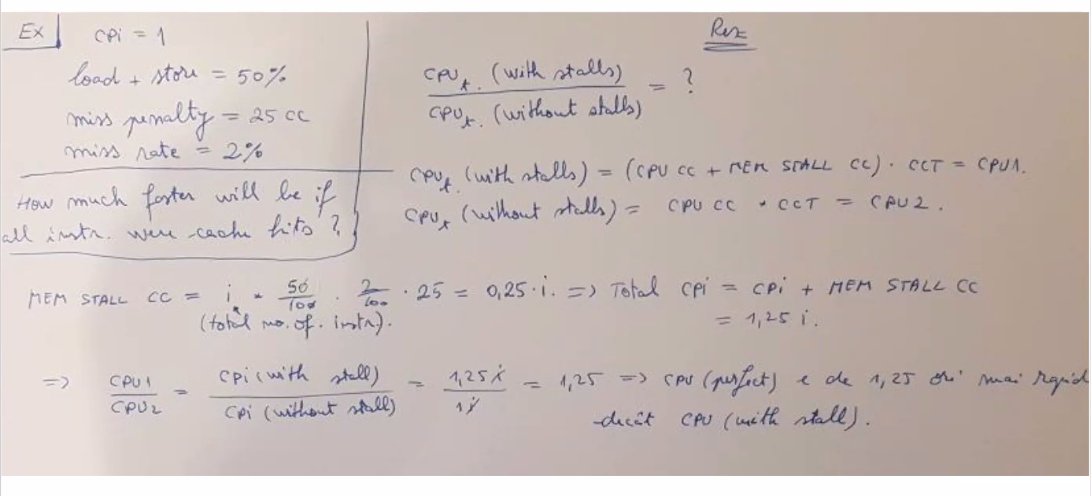 Ex CPi = 1
load + store = 50%
miss penalty = 25 cc
miss rate = 2%
How much faster will be if
all instr. were cache hits ?
Rez
CPU t. (with stalls) / CPU t. (without stalls) = ?
CPU t. (with stalls) = (CPU CC + MEM STALL CC) · CCT = CPU1.
CPU t (without stalls) = CPU CC · CCT = CPU2.
MEM STALL CC = i · 50/100 · 2/100 · 25 = 0,25·i. => Total CPi = CPi + MEM STALL CC
(total no. of. instr). = 1,25 i.
=> CPU1/CPU2 = CPi (with stall) / CPi (without stall) = 1,25 i / 1 i = 1,25 => CPU (perfect) e de 1,25 ori mai rapid
decât CPU (with stall).